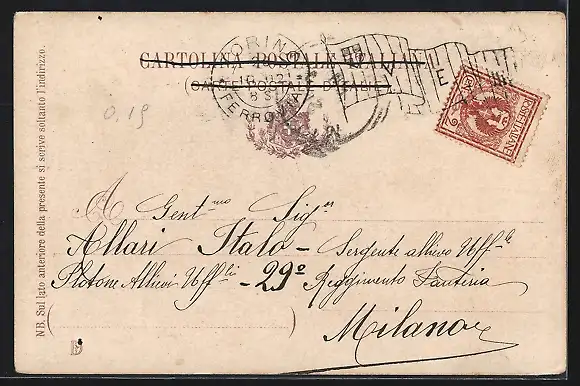 CARTOLINA POSTALE ITALIANA
(CARTE POSTALE D'ITALIE)
TORINO
FERROVIA
V E
POSTE ITALIANE
0,15
NB. Sul lato anteriore della presente si scrive soltanto l'indirizzo.
A Gent.mo Sig.r
Allari Italo - Sergente allievo Uff.le
Plotone Allievi Uff.li - 29º Reggimento Fanteria
Milano